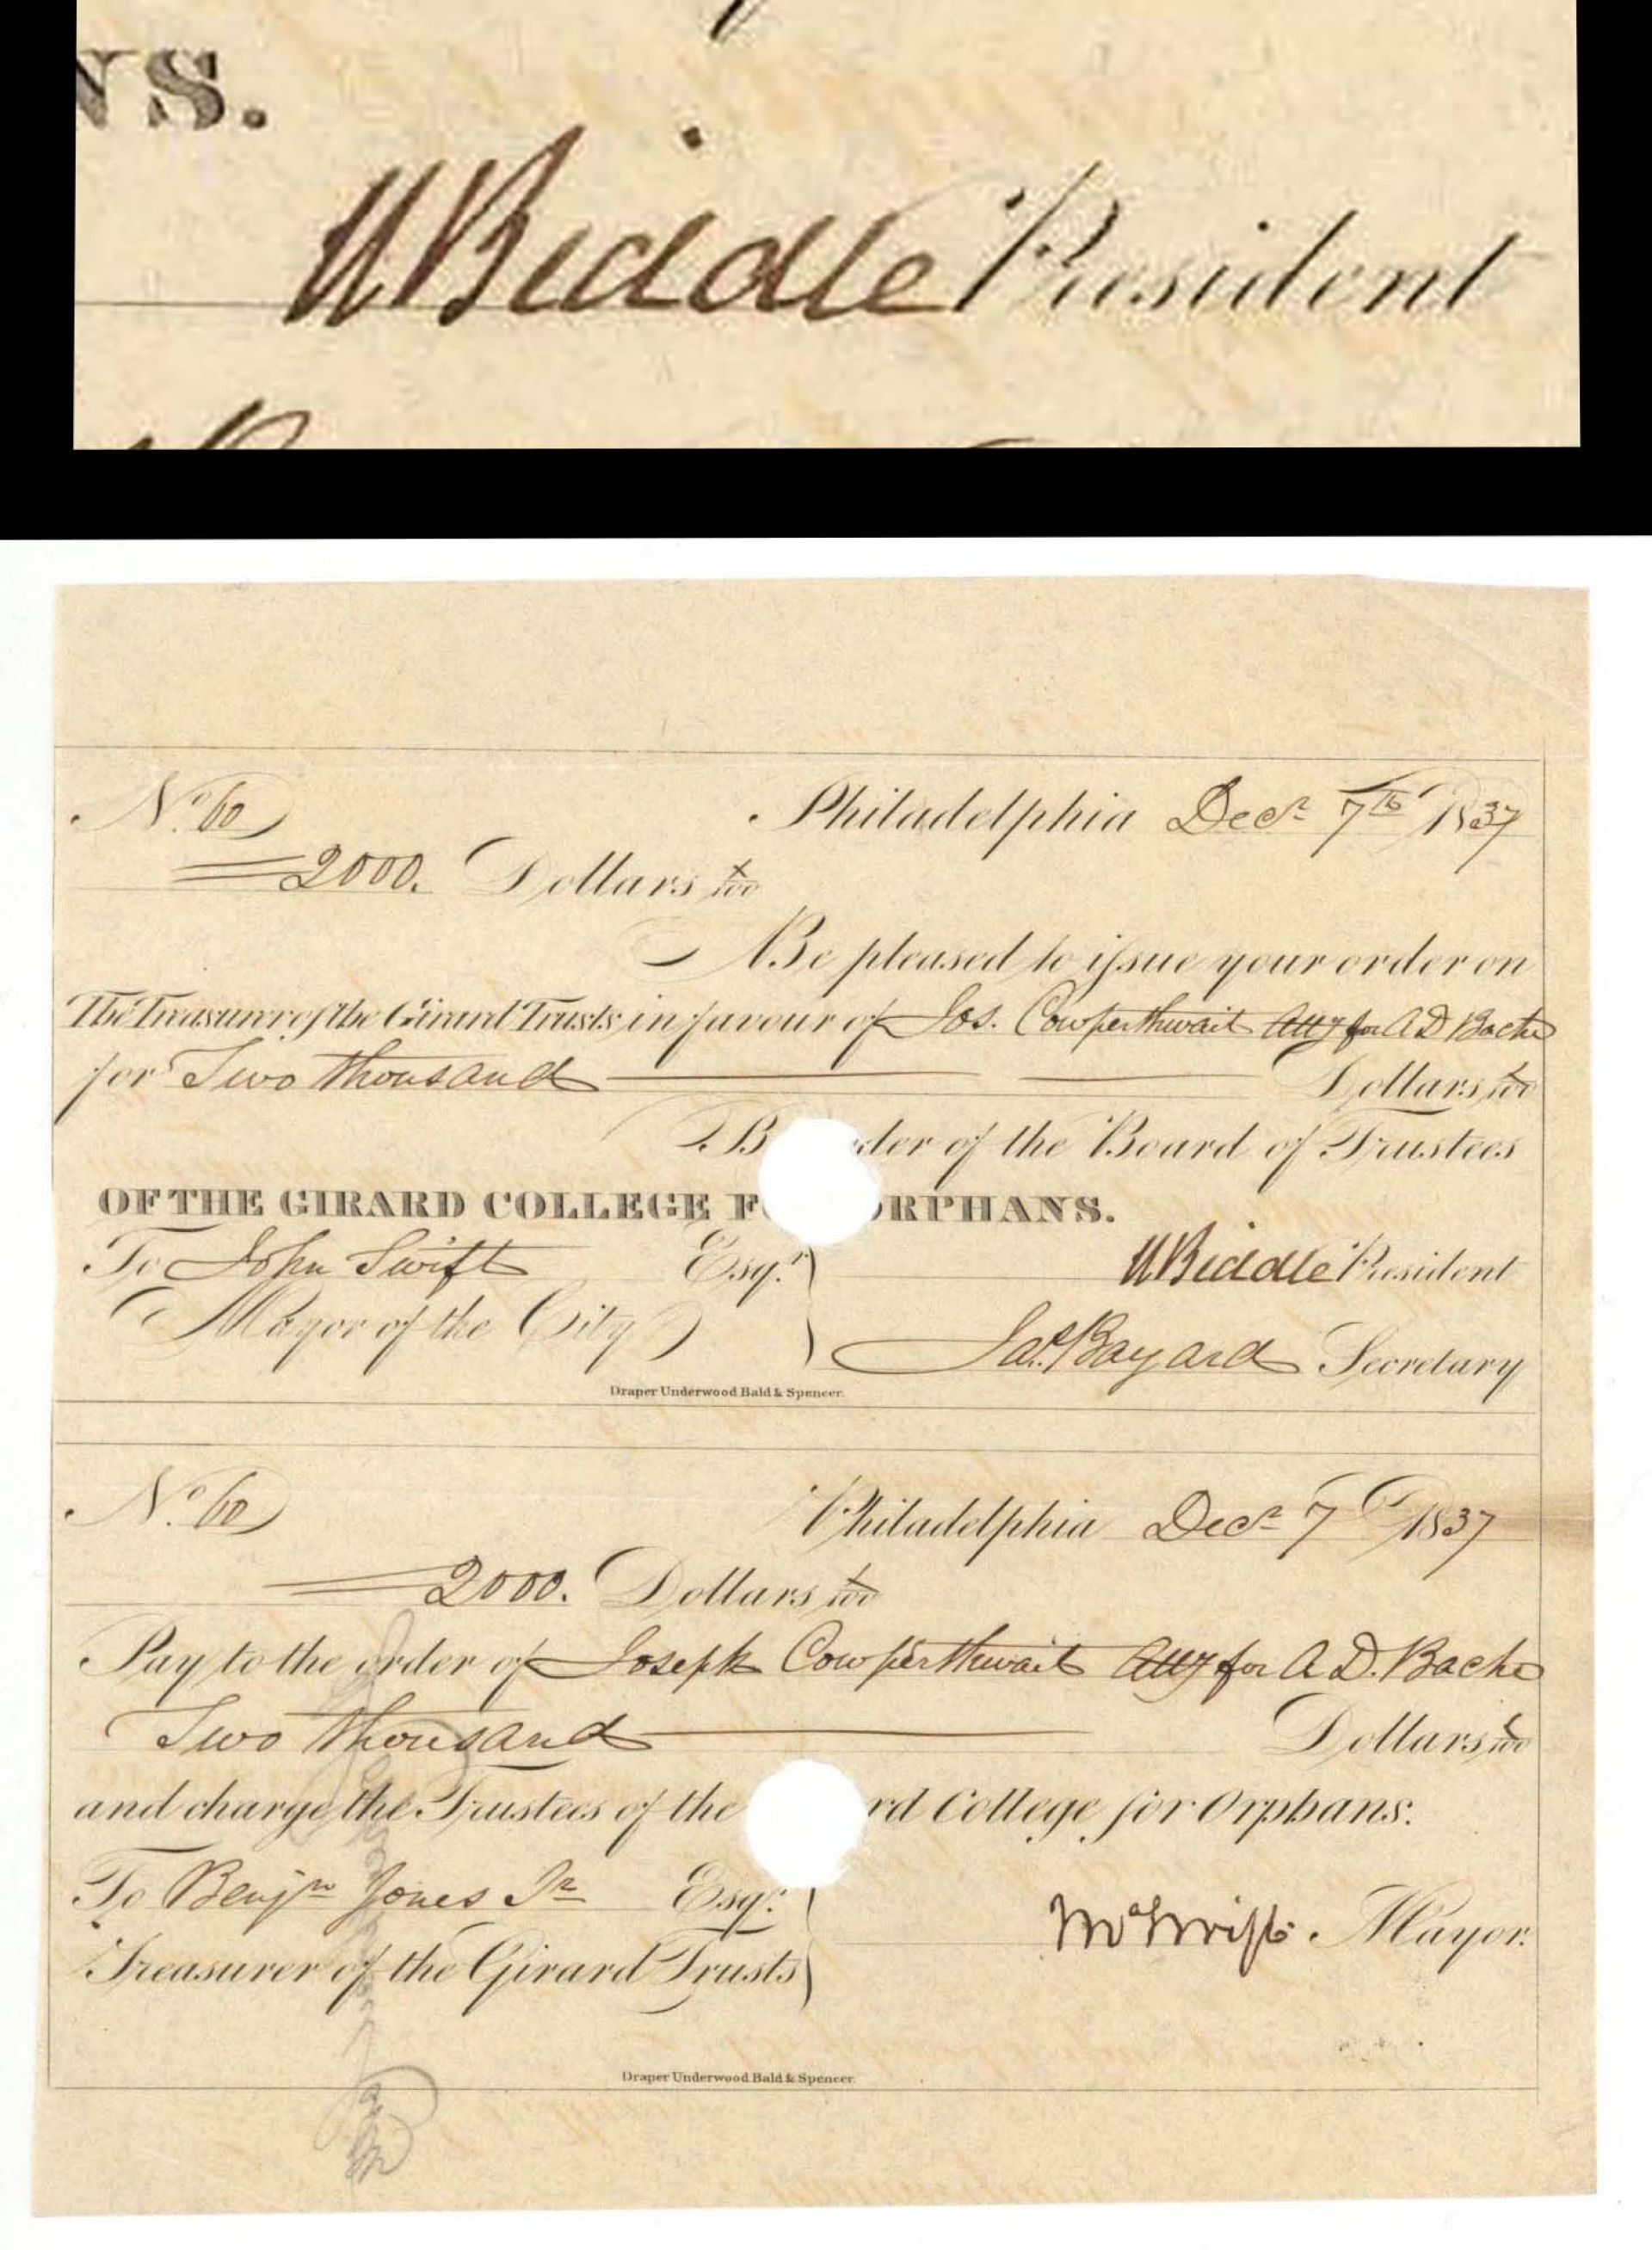 NS.
N Biddle President
No. 60
Philadelphia Decr 7th 1837
2000. Dollars x/100
Be pleased to issue your order on
The Treasurer of the Girard Trusts in favour of Jos. Cowperthwait Atty for A D Bache
for Two thousand Dollars x/100
B der of the Board of Trustees
OF THE GIRARD COLLEGE F RPHANS.
To John Swift Esqr.
N Biddle President
Mayor of the City
Jas. Bayard Secretary
Draper Underwood Bald & Spencer.
No. 60
Philadelphia Decr 7 1837
2000. Dollars x/100
Pay to the order of Joseph Cowperthwait Atty for A. D. Bache
Two thousand Dollars x/100
and charge the Trustees of the rd College for Orphans.
To Benjn Jones Jr Esqr.
Mayor.
Treasurer of the Girard Trusts
Draper Underwood Bald & Spencer.